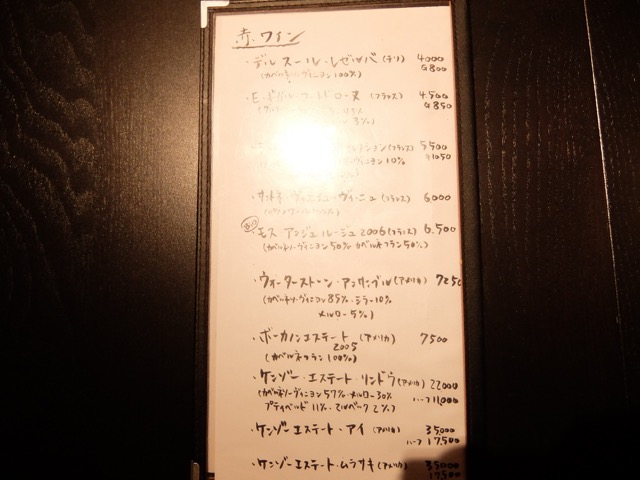 赤ワイン
・デル スール・レゼルバ (チリ) 4000
G800
(カベルネ・ソーヴィニヨン 100%)
・E・ギガル・コート・ド・ローヌ (フランス) 4.500
G850
3%)
(フランス) 5500
ヴィニヨン 10% G1050
(フランス) 6,000
・モス アンジュ ルージュ 2006 (フランス) 6.500
(カベルネソーヴィニヨン 50% カベルネフラン 50%)
・ウォーターストーン・アンサンブル (アメリカ) 7250
(カベルネソーヴィニヨン 85%・シラー 10%
メルロー 5%)
・ボーカノンエステート (アメリカ) 7500
2005
(カベルネフラン 100%)
・ケンゾー・エステート・リンドウ (アメリカ) 22000
(カベルネソーヴィニヨン 57%・メルロー 30% ハーフ 11,000
プティベルド 11%・マルベック 2%)
・ケンゾーエステート・アイ (アメリカ) 35,000
ハーフ 17,500
・ケンゾーエステート・ムラサキ (アメリカ) 35000
17500